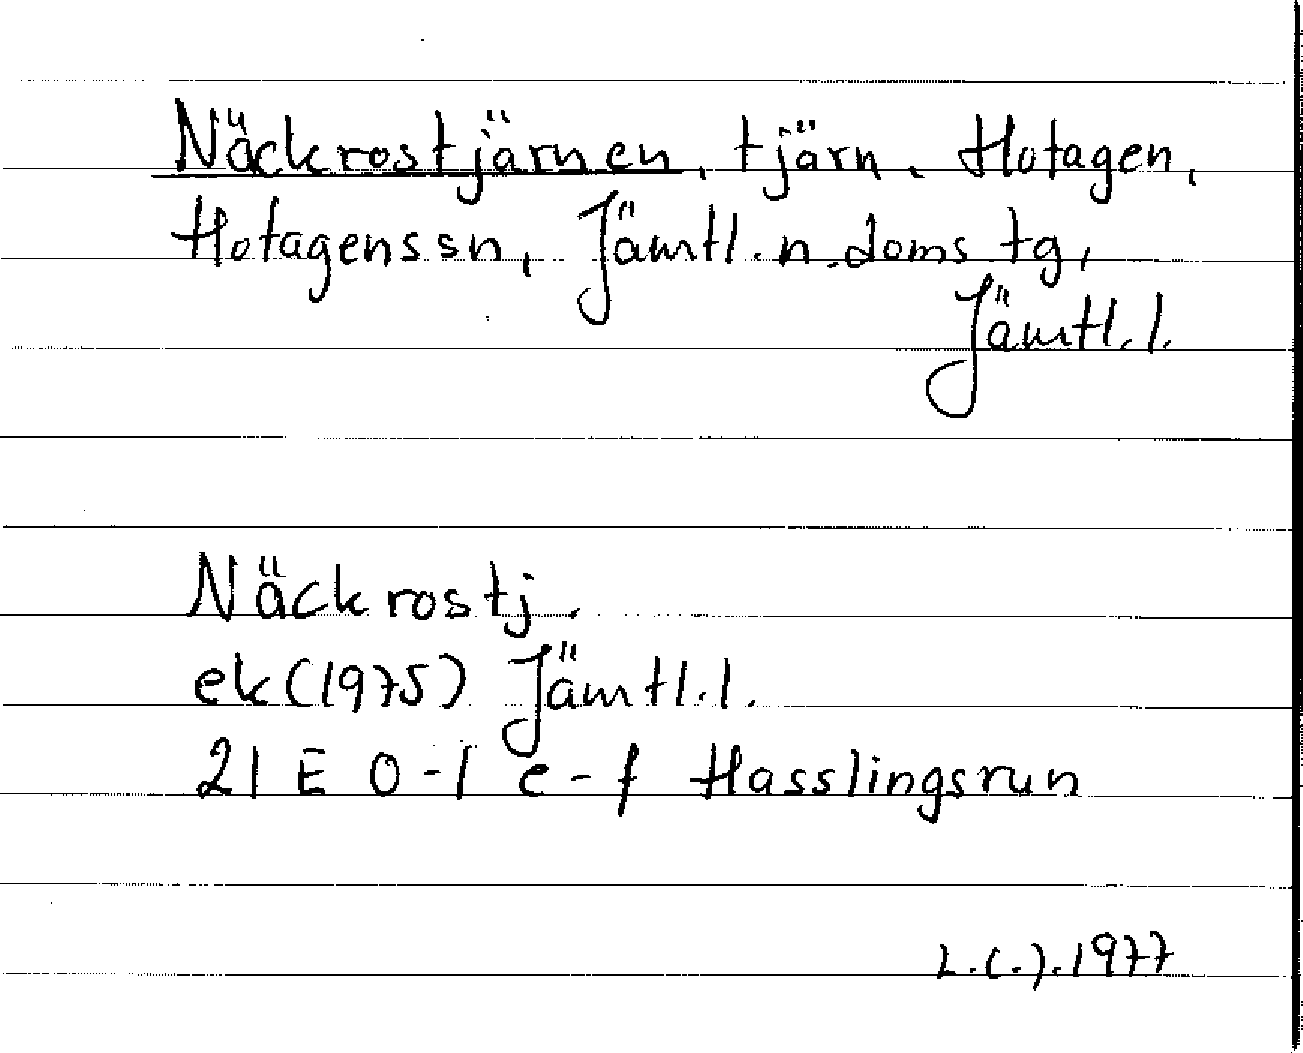 Näckrostjärnen, tjärn, Hotagen,
Hotagens sn, Jämtl. n. doms tg,
Jämtl. l.
Näckrostj.
ek (1975) Jämtl. l.
21 E 0-1 e-f Hasslingsrun
1977